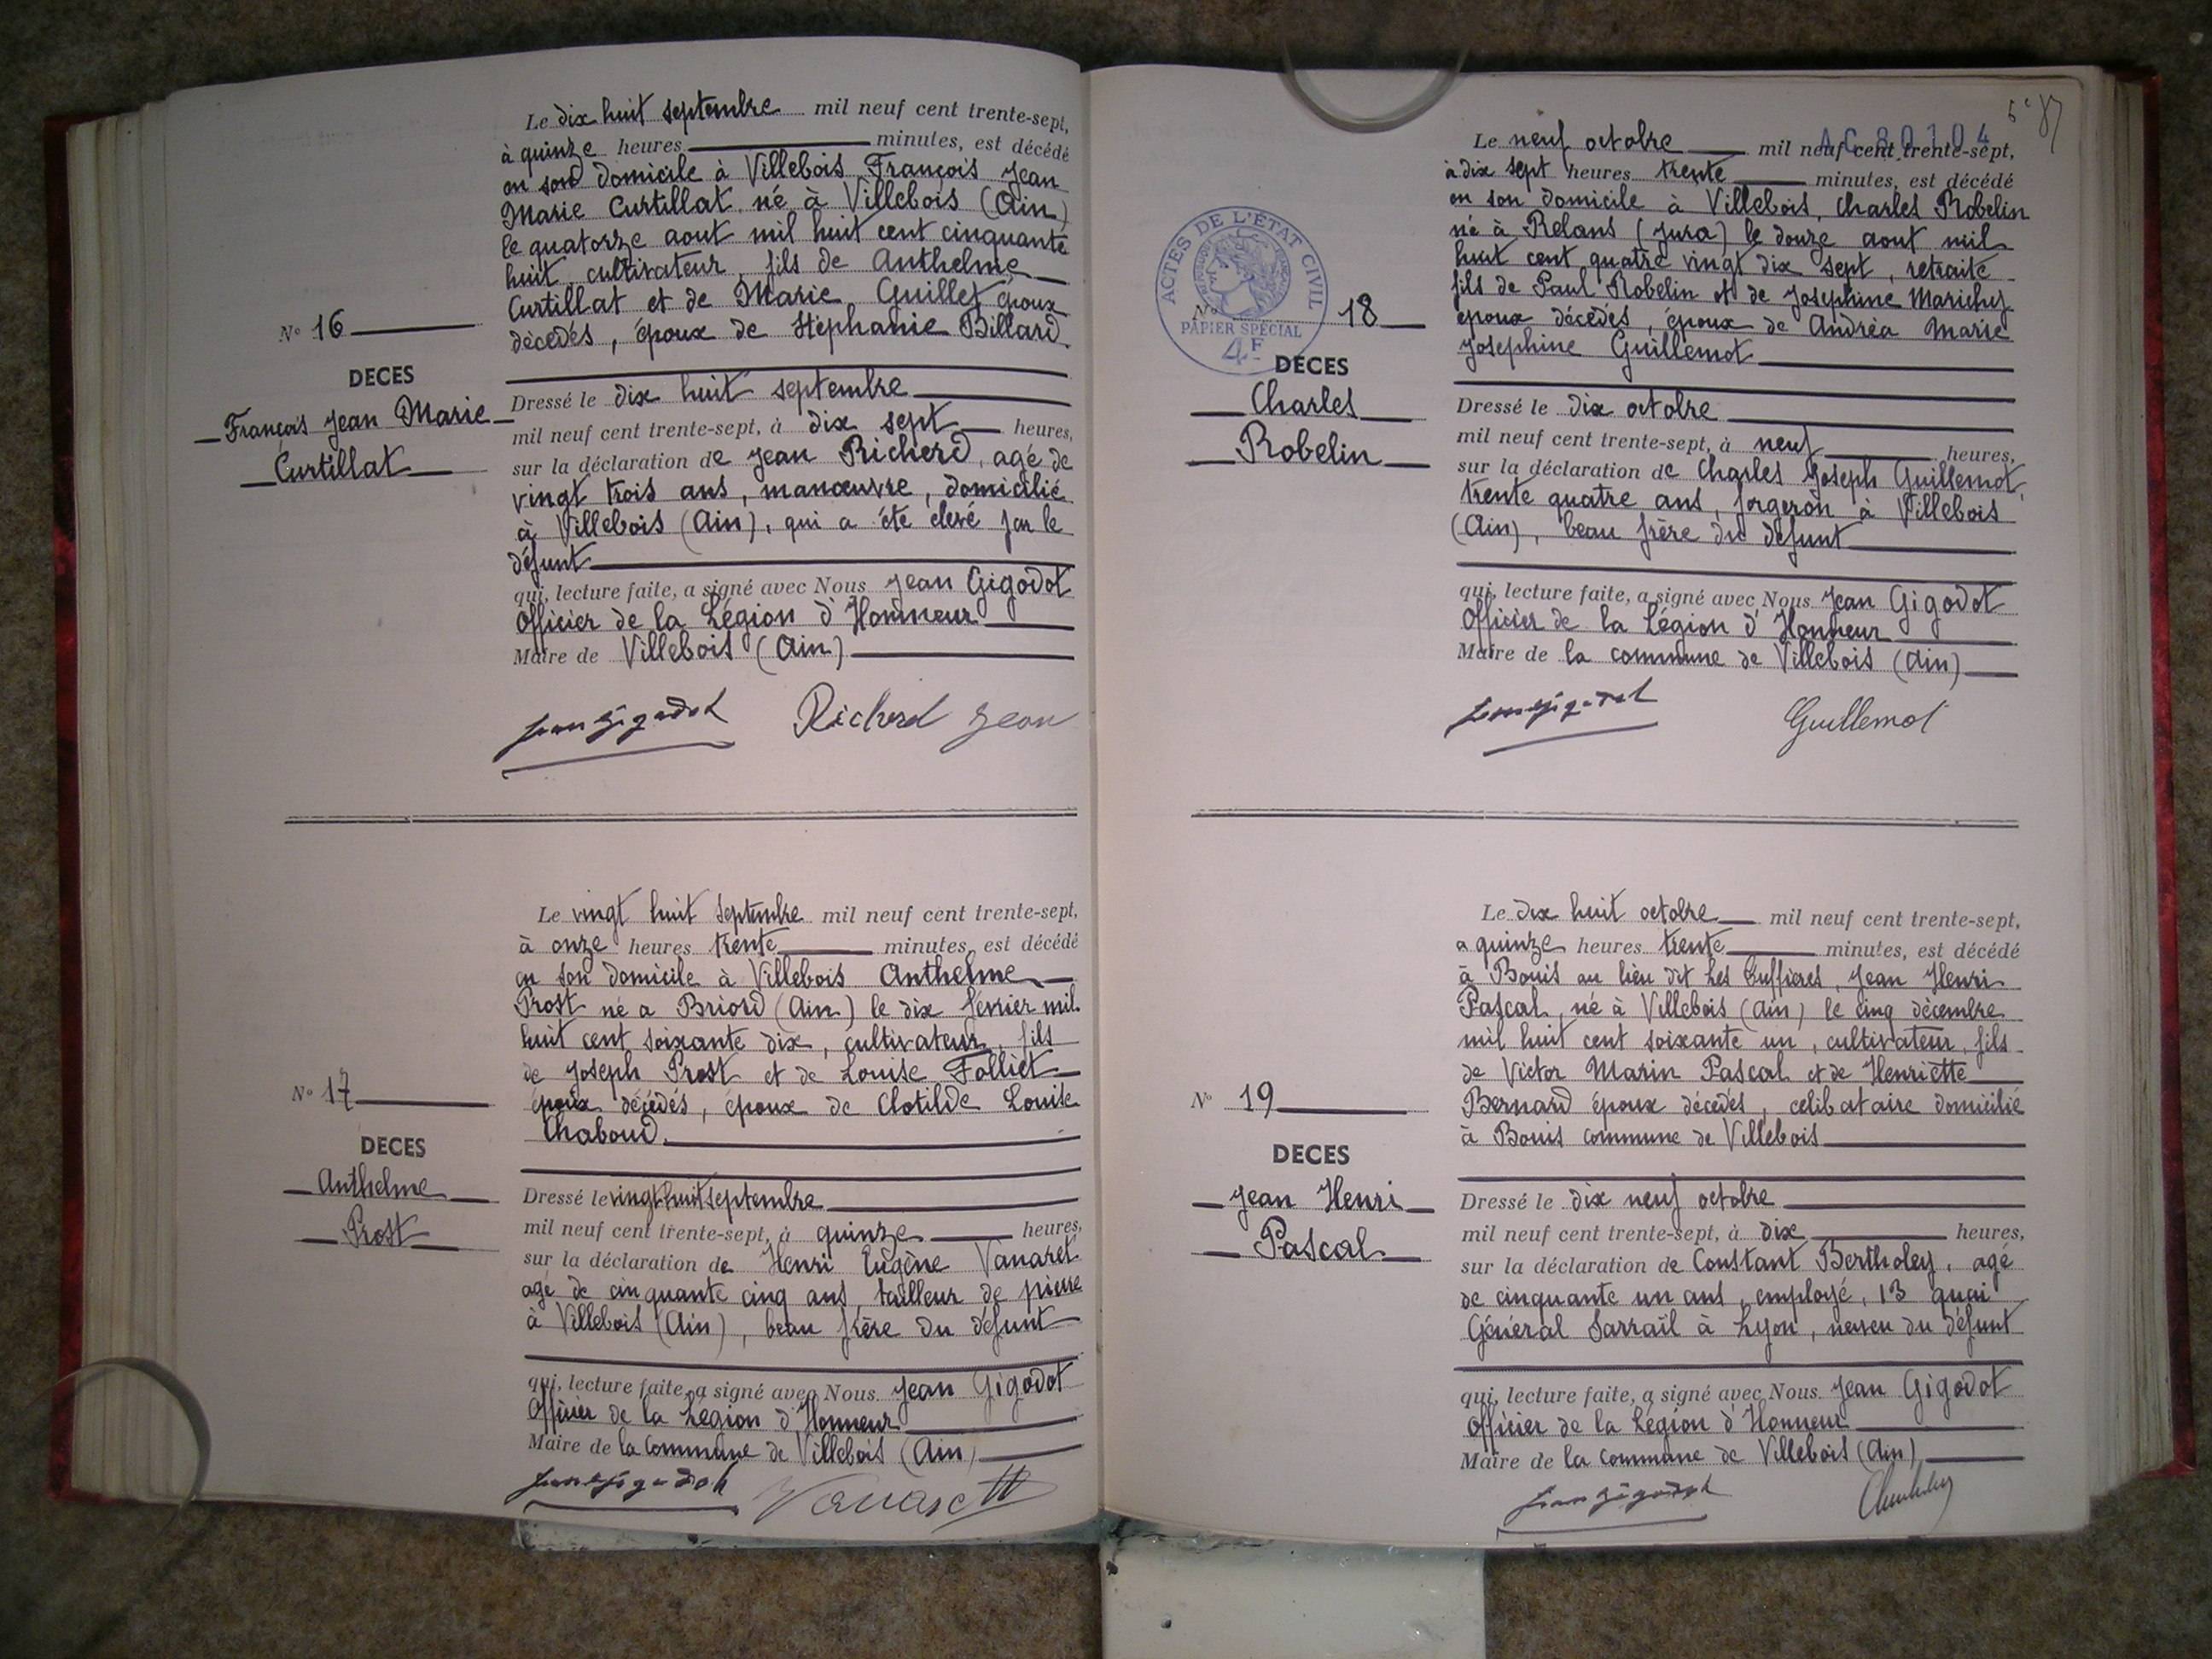 Le dix huit septembre mil neuf cent trente-sept,
à quinze heures minutes, est décédé
en son domicile à Villebois François Jean
Marie Curtillat né à Villebois (Ain)
le quatorze aout mil huit cent cinquante
huit, cultivateur, fils de Anthelme
Curtillat et de Marie Guillet époux
décédés, époux de Stéphanie Billard.
N° 16
DECES
François Jean Marie
Curtillat
Dressé le dix huit septembre
mil neuf cent trente-sept, à dix sept heures,
sur la déclaration de Jean Richerd, agé de
vingt trois ans, manœuvre, domicilié
à Villebois (Ain), qui a été elevé par le
défunt
qui, lecture faite, a signé avec Nous Jean Gigodot
Officier de la Légion d'Honneur
Maire de Villebois (Ain)
Jean Gigodot Richerd Jean
Le vingt huit septembre mil neuf cent trente-sept,
à onze heures trente minutes, est décédé
en son domicile à Villebois Anthelme
Prost né a Briord (Ain) le dix février mil
huit cent soixante dix, cultivateur, fils
de Joseph Prost et de Louise Folliet
époux décédés, époux de Clotilde Louise
Chaboud.
N° 17
DECES
Anthelme
Prost
Dressé le vingt huit septembre
mil neuf cent trente-sept, à quinze heures,
sur la déclaration de Henri Eugène Vanaret
agé de cinquante cinq ans, tailleur de pierre
à Villebois (Ain), beau frère du défunt
qui, lecture faite, a signé avec Nous Jean Gigodot
Officier de la Légion d'Honneur
Maire de la commune de Villebois (Ain)
Jean Gigodot
AC 80104
Le neuf octobre mil neuf cent trente-sept,
à dix sept heures trente minutes, est décédé
en son domicile à Villebois, Charles Robelin
né à Relans (Jura) le douze aout mil
huit cent quatre vingt dix sept, retraité
fils de Paul Robelin et de Josephine Marichy
époux décédés, époux de Andréa Marie
Josephine Guillemot
ACTES DE L'ÉTAT CIVIL
PAPIER SPECIAL
4F
N° 18
DECES
Charles
Robelin
Dressé le dix octobre
mil neuf cent trente-sept, à neuf heures,
sur la déclaration de Charles Joseph Guillemot,
trente quatre ans, forgeron à Villebois
(Ain), beau frère du défunt
qui, lecture faite, a signé avec Nous Jean Gigodot
Officier de la Légion d'Honneur
Maire de la commune de Villebois (Ain)
Jean Gigodot Guillemot
Le dix huit octobre mil neuf cent trente-sept,
a quinze heures trente minutes, est décédé
à Bouis au lieu dit Les Buffieres, Jean Henri
Pascal, né à Villebois (Ain) le cinq décembre
mil huit cent soixante un, cultivateur, fils
de Victor Marin Pascal et de Henriette
Bernard époux décedés, celibataire domicilié
à Bouis commune de Villebois
N° 19
DECES
Jean Henri
Pascal
Dressé le dix neuf octobre
mil neuf cent trente-sept, à dix heures,
sur la déclaration de Constant Bertholey, agé
de cinquante un ans, employé, 13 quai
Général Sarrail à Lyon, neveu du défunt
qui, lecture faite, a signé avec Nous Jean Gigodot
Officier de la Légion d'Honneur
Maire de la commune de Villebois (Ain)
Jean Gigodot